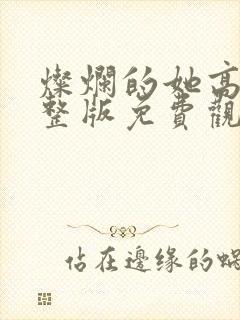 燦爛的她高
整版免費觀
佔在邊缘的蝸